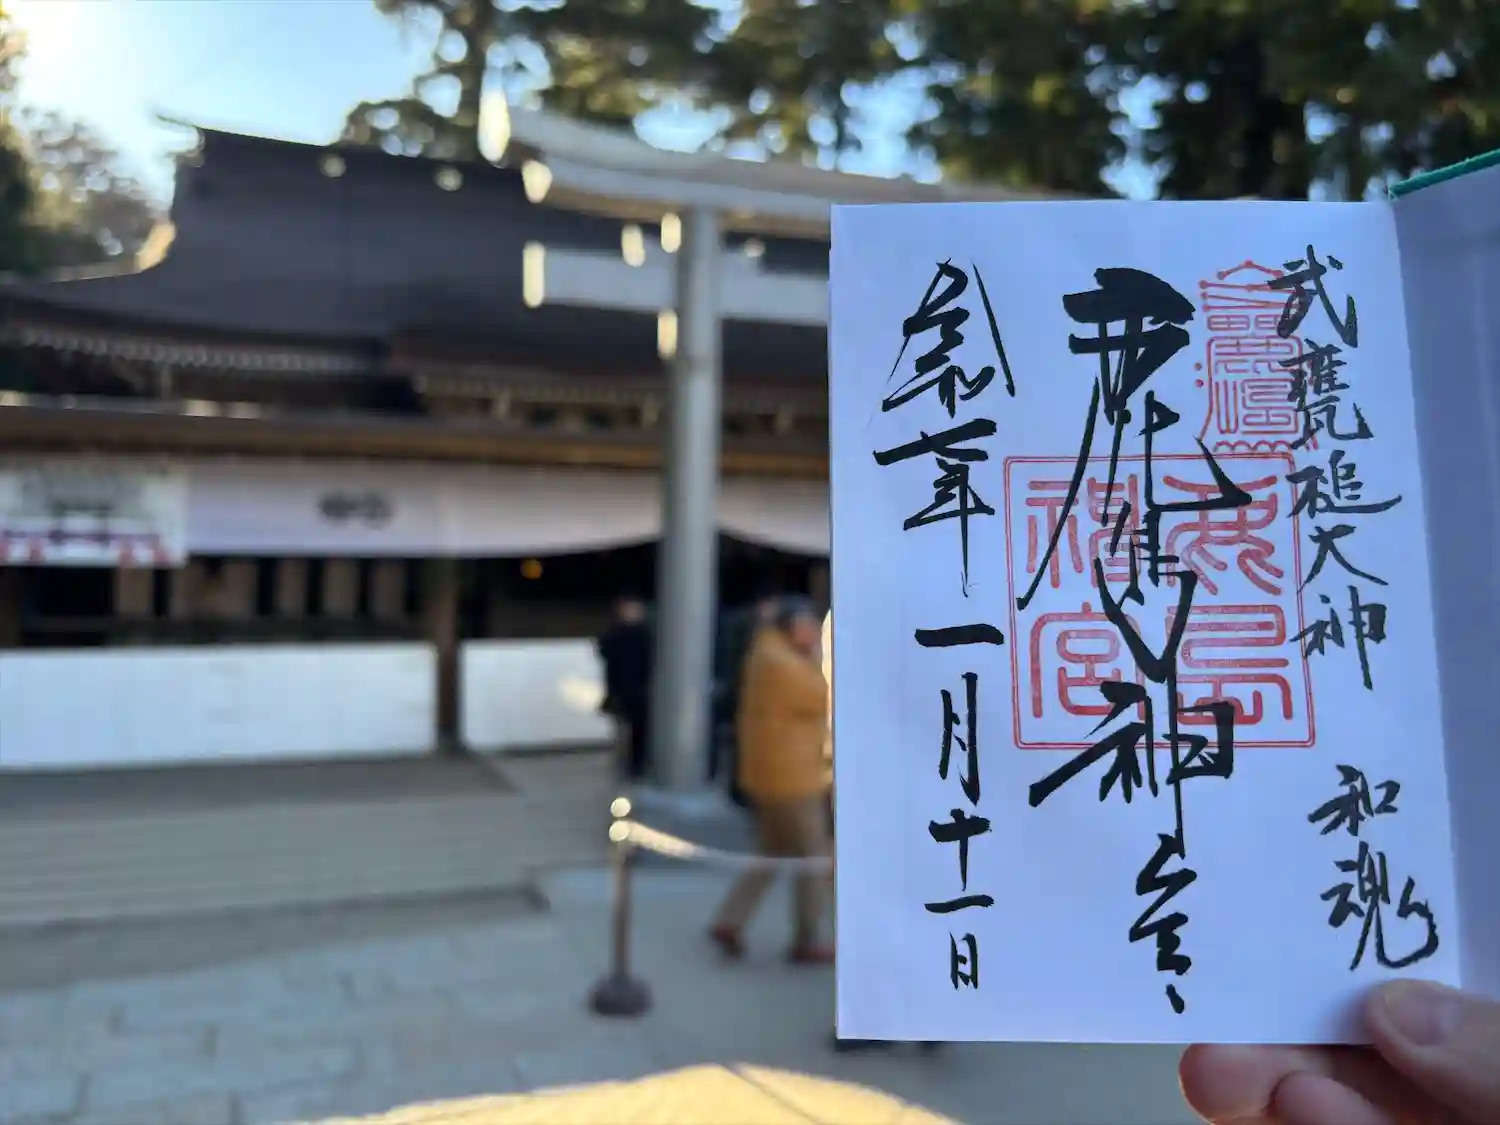 武甕槌大神 和魂
鹿島神宮
鹿島
神宮
令和七年一月十一日